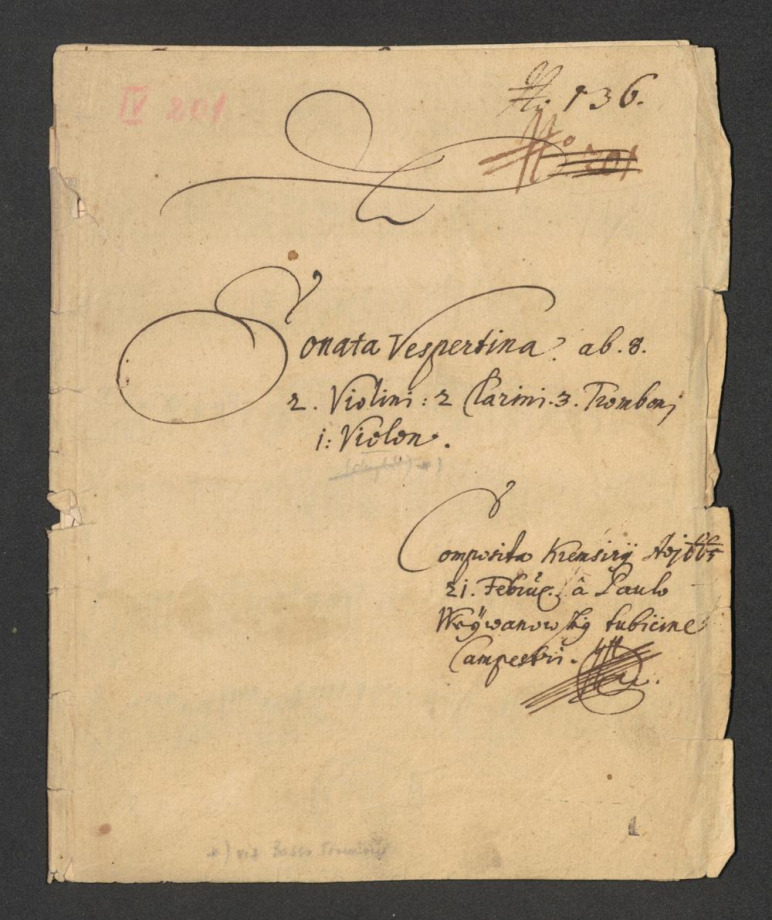 IV 201
No. 136.
No 201
Sonata Vespertina. ab. 8.
2. Violini: 2 Clarini. 3. Tromboni
1: Violon.
Composita Kremsirÿ Ao 1665
21. Febru: â Paulo
Weÿwanowskÿ tubicine
Campestri.
1